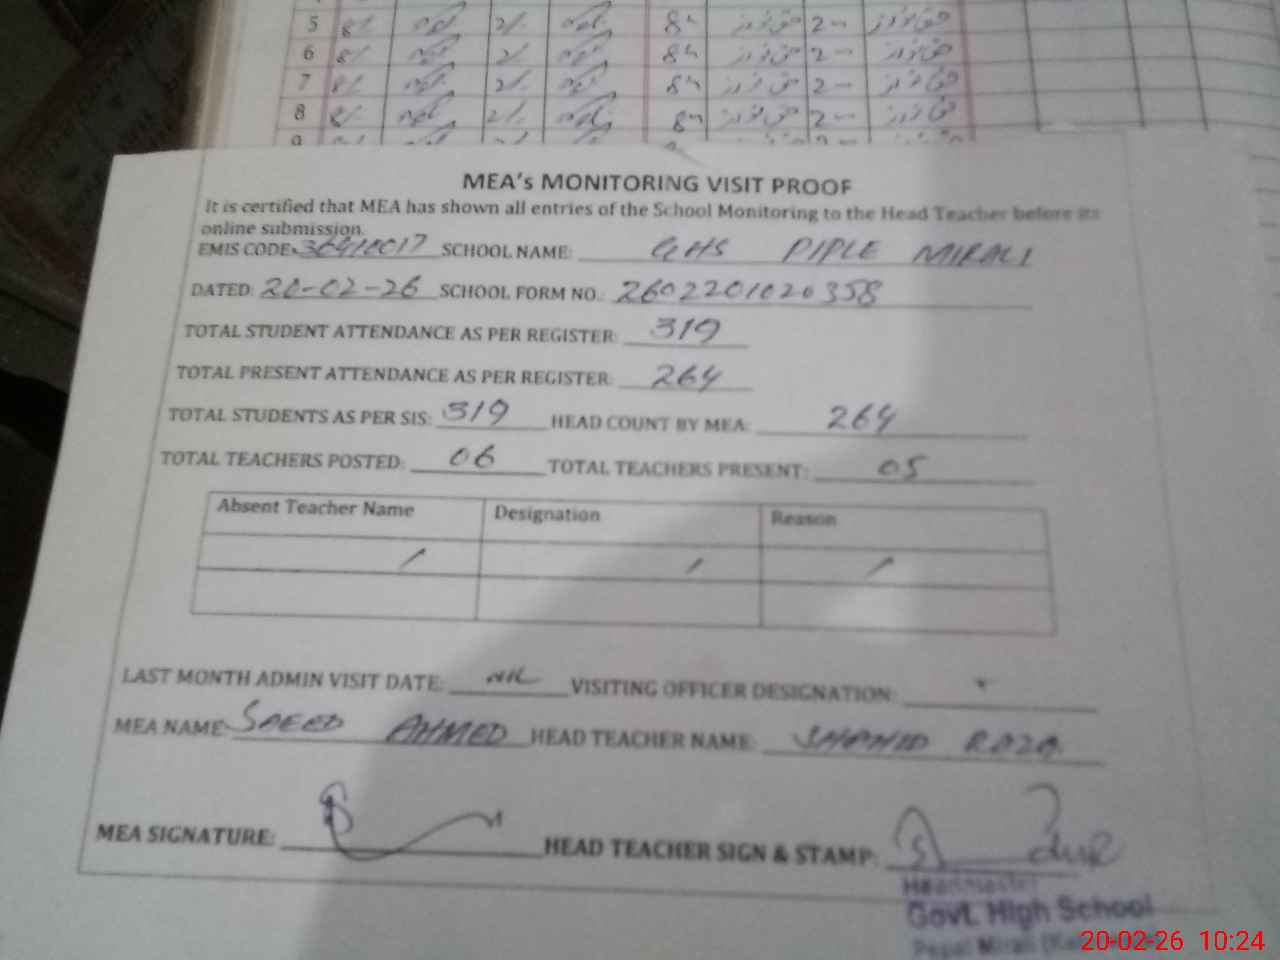 5 8/. 2/. 8 2
6 8/. 2/ 8 2
7 8/. 2/. 8 2
8 8/. 2/. 8 2
MEA's MONITORING VISIT PROOF
It is certified that MEA has shown all entries of the School Monitoring to the Head Teacher before its
online submission.
EMIS CODE: 36410017 SCHOOL NAME: GHS PIPLE MIRALI
DATED: 20-02-26 SCHOOL FORM NO.: 2602201020358
TOTAL STUDENT ATTENDANCE AS PER REGISTER: 319
TOTAL PRESENT ATTENDANCE AS PER REGISTER: 264
TOTAL STUDENTS AS PER SIS: 319 HEAD COUNT BY MEA: 264
TOTAL TEACHERS POSTED: 06 TOTAL TEACHERS PRESENT: 05
Absent Teacher Name Designation Reason
/ / /
LAST MONTH ADMIN VISIT DATE: NIL VISITING OFFICER DESIGNATION:
MEA NAME: SAEED AHMED HEAD TEACHER NAME: SHAHID RAZA
MEA SIGNATURE: HEAD TEACHER SIGN & STAMP:
Headmaster
Govt. High School
Pepal Mirali
20-02-26 10:24